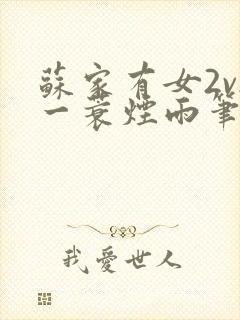 蘇家有女2v
一蓑煙雨筆
我愛世人